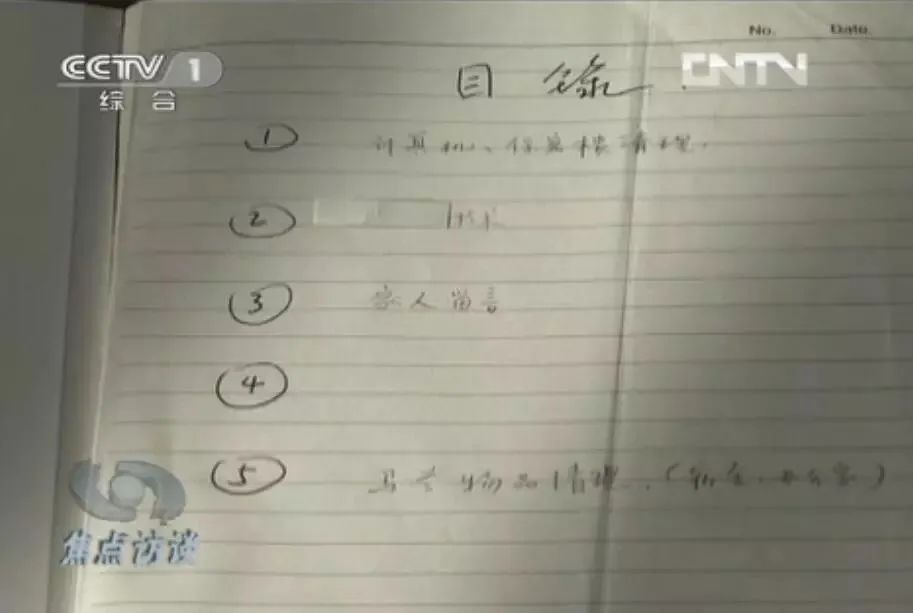 CCTV 1
综合
CNTV
No. Date
目录
① 计算机、保密柜清理.
② 技术
③ 家人留言
④
⑤ 马兰物品清理.(宿舍、办公室)
焦点访谈